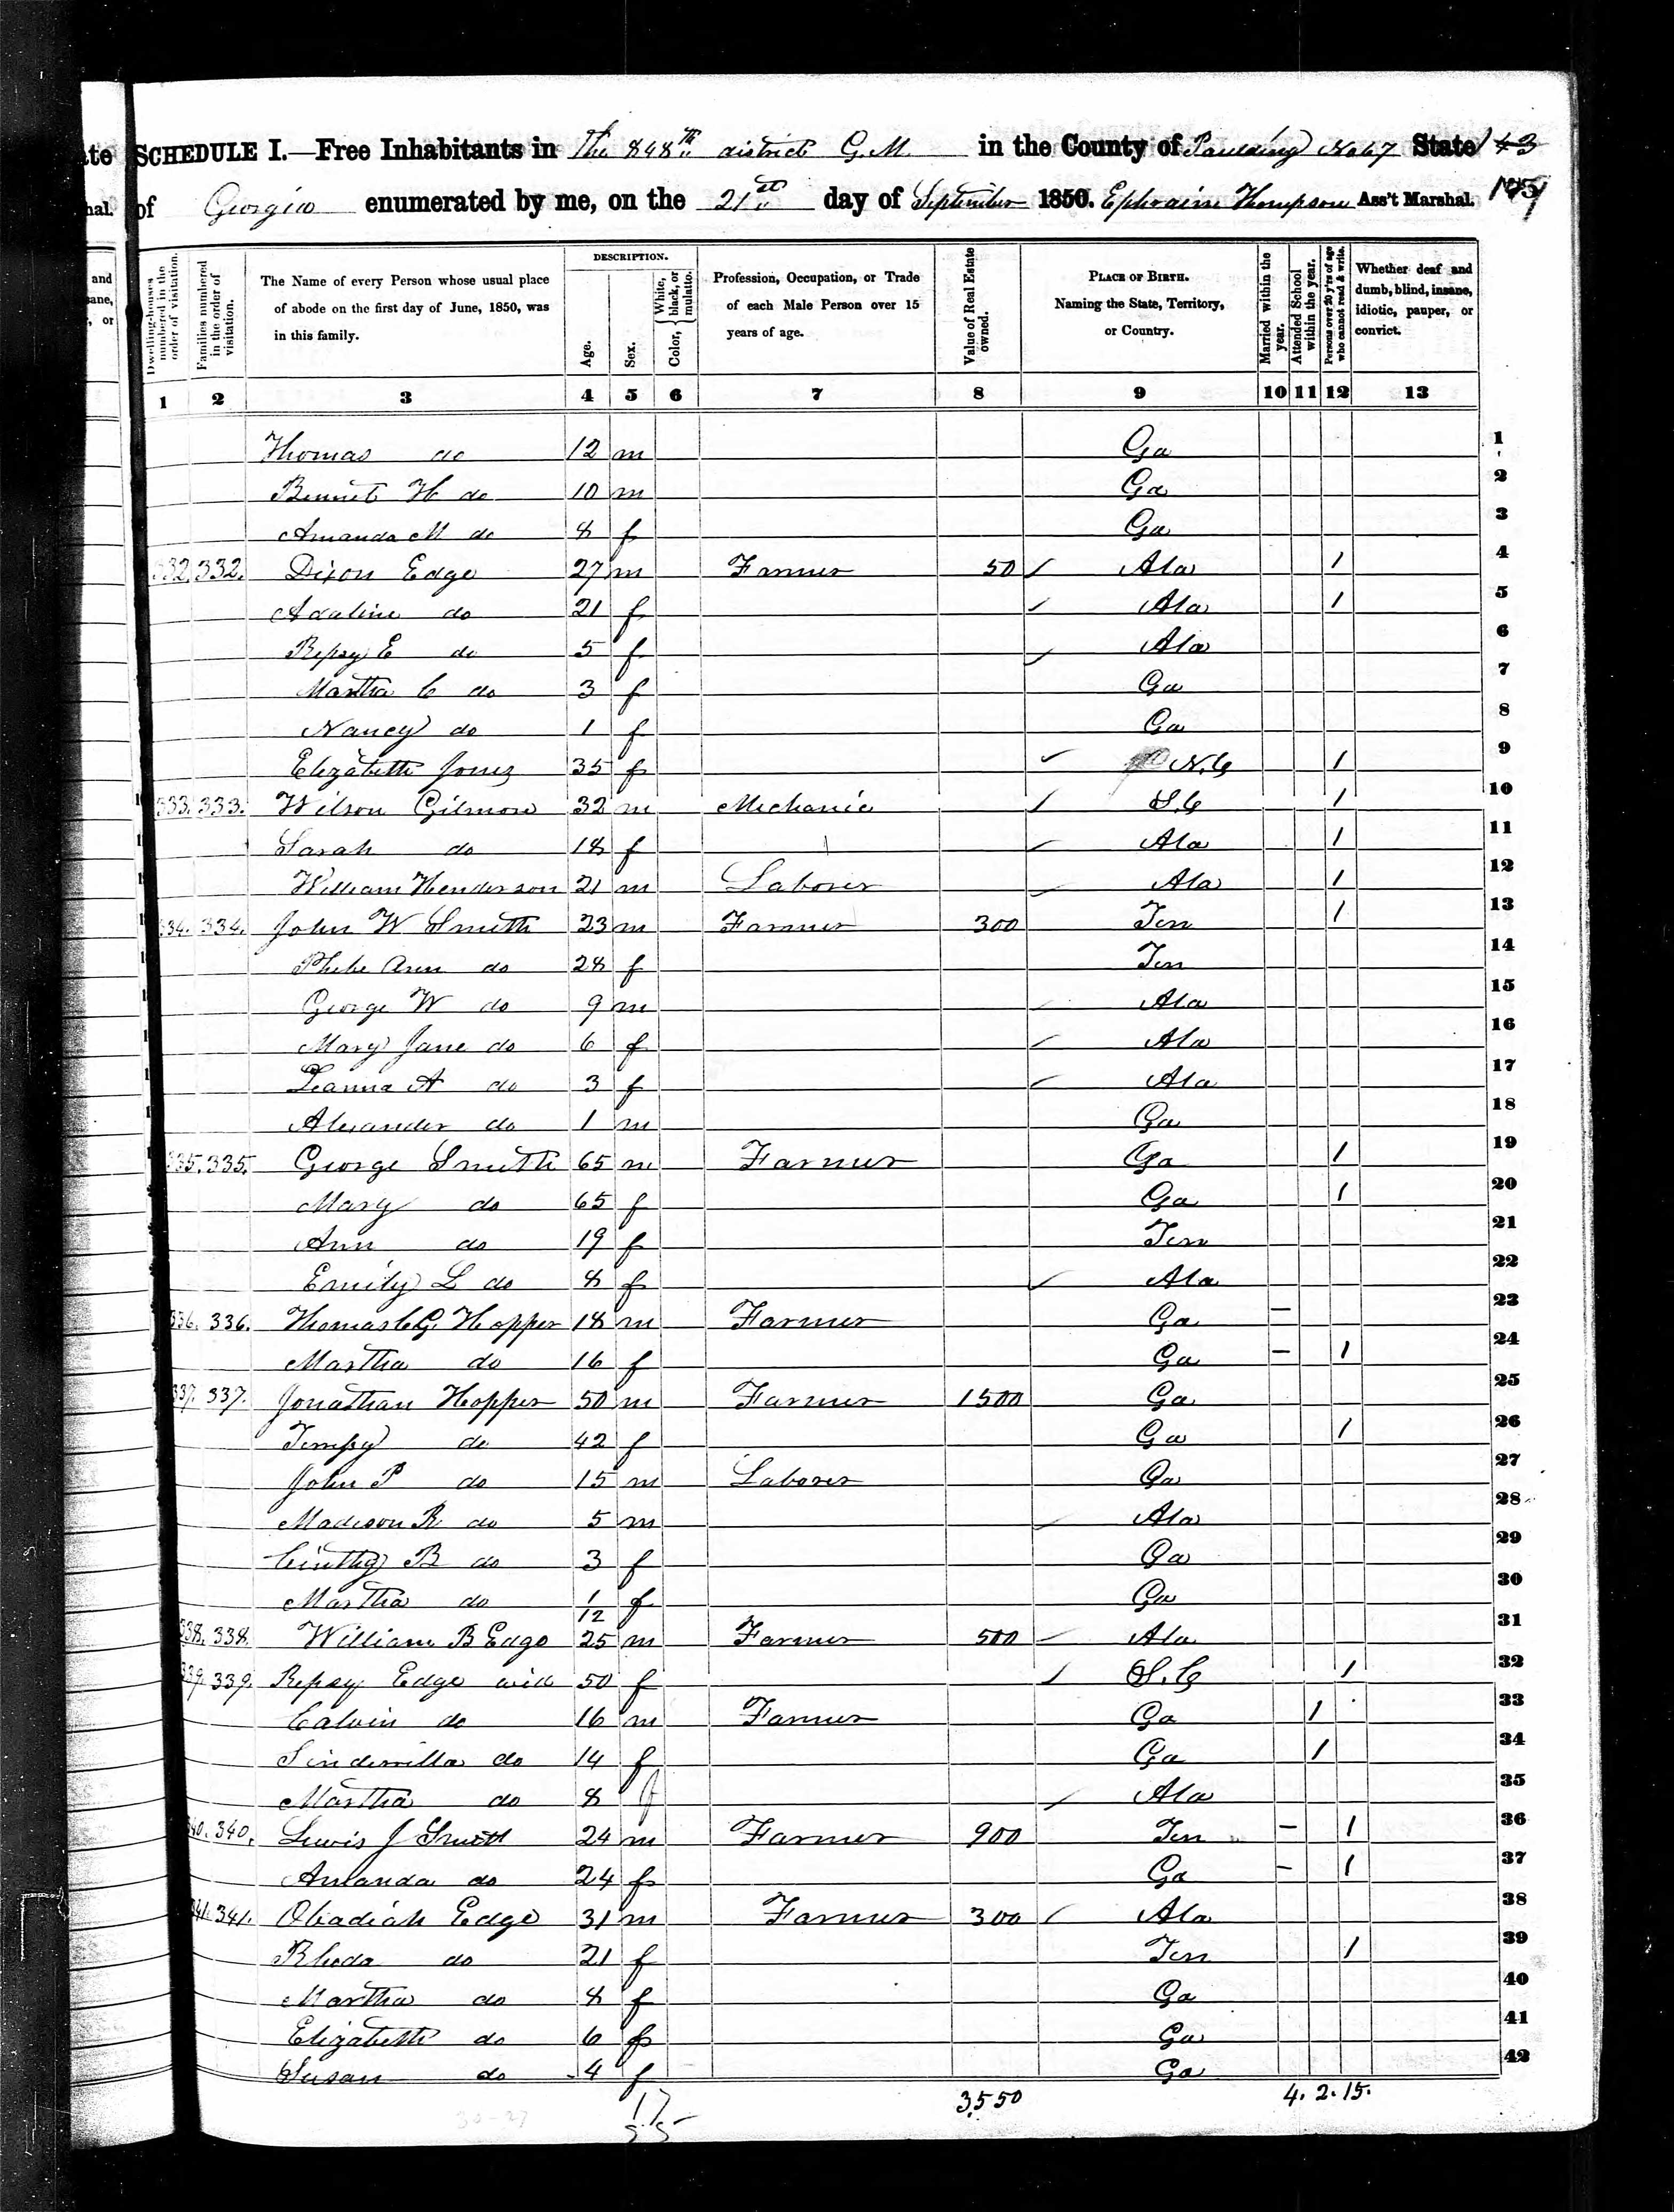 ate SCHEDULE I.—Free Inhabitants in The 848th district G.M. in the County of Paulding No 67 State 43
hal. of Georgia enumerated by me, on the 21st day of September 1850. Ephraim Thompson Ass't Marshal.
and
sane,
, or
Dwelling-houses numbered in the order of visitation.
Families numbered in the order of visitation.
The Name of every Person whose usual place of abode on the first day of June, 1850, was in this family.
DESCRIPTION.
Age.
Sex.
Color, { White, black, or mulatto.
Profession, Occupation, or Trade of each Male Person over 15 years of age.
Value of Real Estate owned.
PLACE OF BIRTH. Naming the State, Territory, or Country.
Married within the year.
Attended School within the year.
Persons over 20 y'rs of age who cannot read & write.
Whether deaf and dumb, blind, insane, idiotic, pauper, or convict.
1 2 3 4 5 6 7 8 9 10 11 12 13
Thomas do 12 m Ga 1
Bennet H do 10 m Ga 2
Amanda M do 8 f Ga 3
332 332. Dixon Edge 27 m Farmer 50 / Ala 1 4
Adaline do 21 f Ala 1 5
Repsy E do 5 f Ala 6
Martha C do 3 f Ga 7
Nancy do 1 f Ga 8
Elizabeth Jones 35 f N.C 1 9
333. 333. Wilson Gilmore 32 m Mechanic / S.C 1 10
Sarah do 18 f Ala 1 11
William Henderson 21 m Laborer Ala 1 12
334. 334. John W Smith 23 m Farmer 300 Ten 1 13
Phebe Ann do 28 f Ten 14
George W do 9 m Ala 15
Mary Jane do 6 f Ala 16
Leanna A do 3 f Ala 17
Alexander do 1 m Ga 18
335. 335. George Smith 65 m Farmer Ga 1 19
Mary do 65 f Ga 1 20
Ann do 19 f Ten 21
Emily L do 8 f Ala 22
336. 336. Thomas C G. Hopper 18 m Farmer Ga — 23
Martha do 16 f Ga — 1 24
337. 337. Jonathan Hopper 50 m Farmer 1500 Ga 25
Tempy do 42 f Ga 1 26
John P do 15 m Laborer Ga 27
Madison R do 5 m Ala 28
Cinthy B do 3 f Ga 29
Martha do 1/12 f Ga 30
338. 338. William B Edge 25 m Farmer 500 Ala 31
339. 339. Repsy Edge wid 50 f / S.C 1 32
Calvin do 16 m Farmer Ga 1 33
Sinderrilla do 14 f Ga 1 34
Martha do 8 f Ala 35
340. 340. Lewis J Smith 24 m Farmer 900 Ten — 1 36
Amanda do 24 f Ga — 1 37
341. 341. Obadiah Edge 31 m Farmer 300 / Ala 38
Rhoda do 21 f Ten 1 39
Martha do 8 f Ga 40
Elizabeth do 6 f Ga 41
Susan do 4 f Ga 42
17 3,550 4. 2. 15.
25
30-27